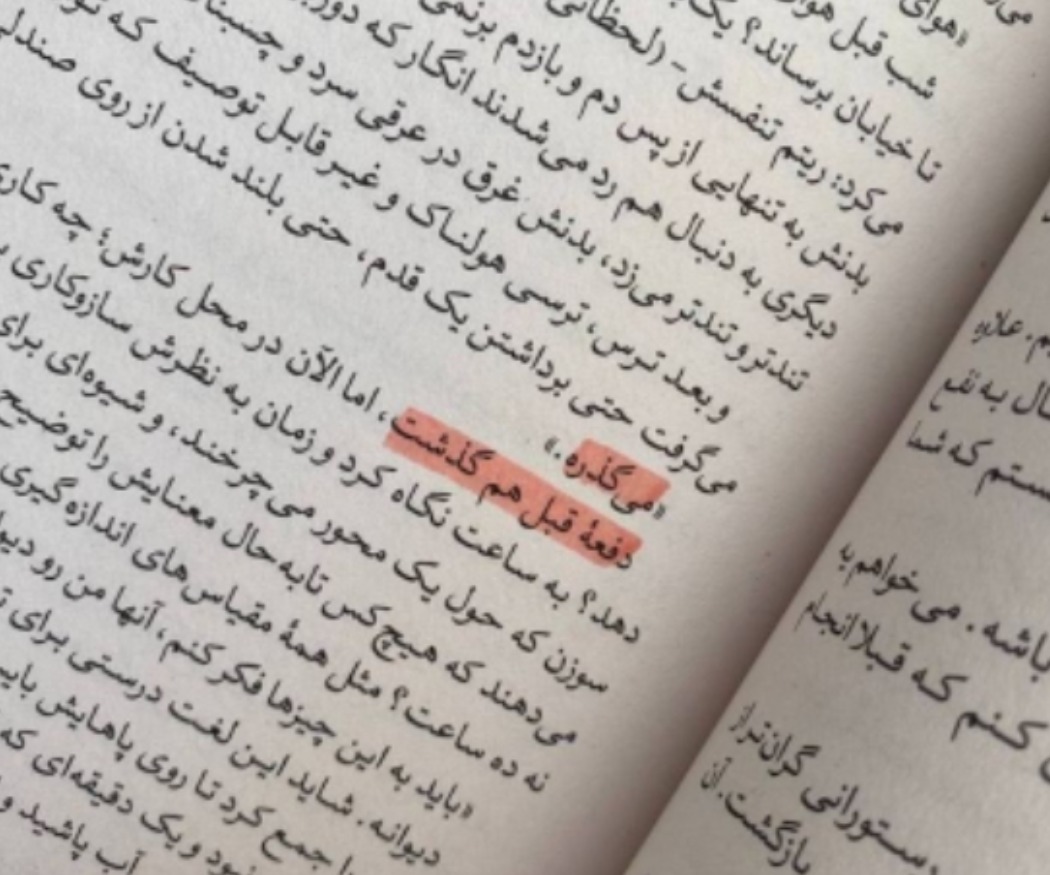 «هوای
شب قبل
تا خیابان برساند؟ یک
می‌کرد: ریتم تنفسش - (لحظاتی
بدنش به تنهایی از پس دم و بازدم برنمی
دیگری به دنبال هم رد می‌شدند انگار که
تندتر و تندتر می‌زد، بدنش غرق در عرقی سرد و
و بعد ترس، ترسی هولناک و غیرقابل توصیف که
می‌گرفت حتی برداشتن یک قدم، حتی بلند شدن از روی صندلی
«می‌گذره.»
دفعهٔ قبل هم گذشت، اما الآن در محل کارش؟ چه کاری
دهد؟ به ساعت نگاه کرد و زمان به نظرش سازوکاری
سوزن که حول یک محور می‌چرخند، و شیوه‌ای برای
می‌دهند که هیچ‌کس تا به حال معنایش را توضیح
نه ده ساعت؟ مثل همهٔ مقیاس‌های اندازه‌گیری
«باید به این چیزها فکر کنم، آنها من رو
دیوانه. شاید این لغت درستی برای
جمع کرد تا روی پاهایش
نبود و یک دقیقه‌ای که
آب پاشید و
علاوه
به نفع
که شما
باشه. می‌خواهم به
کنم که قبلا انجام
رستورانی گران‌تر از
بازگشت. آن